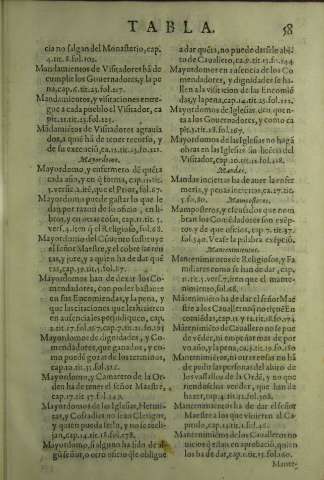 TABLA.
58
cia no salgan del Monasterio, cap.
4. tit. 8. fol. 102.
Mandamientos de Visitadores há de
cumplir los Governadores, y la pe
na, cap. 6. tit. 23. fol. 217.
Mandamientos, y visitaciones entre-
gue a cada pueblo el Visitador, ca
pit. 21. tit. 23. fol. 223.
Mádamiẽtos de Visitadores agravia
dos, a qué há de tener recurso, y
de su execució, ca. 13. tit. 23. fo. 221.
Mayordomo.
Mayordomo, y enfermero dé queta
cada año, y en q̃ forma, cap. 15. tit.
3. versic. 2. itẽ, que el Prior, fol. 67.
Mayordomo puede gastar lo que le
dan por razon de su oficio, en li-
bros, y otras cosas, cap. 12. tit. 5.
vers. 4. item q̃ el Religioso, fol. 68.
Mayordomo del Convento sustituye
el señor Maestre, y el cobre los ren
tas, y jure, y a quien ha de dar que
tas, cap. 19. tit. 5. fol. 87.
Mayordomos han de dexar los Co-
mendadores, con poder bastante
en sus Encomiendas, y la pena, y
que las citaciones que les hizieren
en ausencia les perjudiquen, cap.
2. tit. 17. fol. 167.
Mayordomos de dignidades, y Co-
mendadores, que ganados, y co-
mo puedé gozar de los terminos,
cap. 10. tit. 12.
Mayordomo, y Camarero de la Or-
den ha de tener el señor Maestre,
cap. 17. tit. 17. fol. 149.
Mayordomos de las Iglesias, Hermi-
tas, y Cofradias no sean Clerigos,
y quien pueda serlo, y no se reeli-
jan, cap. 14. tit. 18. fol. 178.
Mayordomo, si alguno ha sido de al-
gũ señor, o otro oficio q̃ le obligue
a dar quẽta, no puede darsele abi-
to de Cavallero,
Mayordomo en ausencia de los Co-
mendadores, y dignidades se ha-
llen a la visitacion de las Encomiẽ
das, y la pena, cap. 14. tit. 23. fol. 222.
Mayordomos de Iglesias
ta a los Governadores, y como, ca
pit. 3. tit. 18. fol. 267.
Mayordomos de las Iglesias no hagá
obras en las Iglesias sin licẽcia del
Visitador, cap. 10. tit. 23. fol. 218.
Mandas.
Mandas inciertas há de aver la enfer
meria, y penas inciertas, ca. 17. tit.
5. fo. 80.
Mamposteros.
Mamposteros, y escusados que nom
bran los Comédadores son esẽp-
tos y de que oficios, cap. 3. tit. 36.
fol. 340. Vease la palabra exẽpció.
Mantenimientos.
Mantenimientos de Religiosos, y Fa
miliares como se han de dar, cap.
2. tit. 6. vers. 7. iten que el mante-
nimiento, fol. 68.
Mátenimiẽto ha de dar el señor Mae
stre a los Cavalleros q̃ no tiené En
comiẽdas,
Mátenimiẽto de Cavallero no se pue
de vẽder, ni empeñar mas de por
vn año, y la pena,
Mátenimiẽto, ni otras rentas no há
de pedir las personas del abito de
los vassallos de la Ordé, y no que-
riendoselos vender, que han de
hazer,
Mantenimiento ha de dar el señor
Maestre a los que vinieren al Ca-
pitulo,
Mantenimiẽto de los Cavalleros no-
vicios q̃ estan en aprobació, quien
los ha de dar,
Mante-